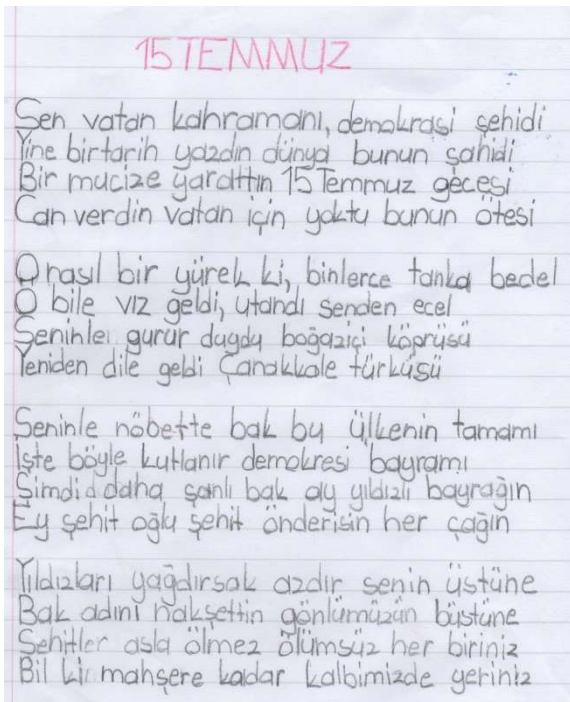 15 TEMMUZ
Sen vatan kahramanı, demokrasi şehidi
Yine bir tarih yazdın dünya bunun şahidi
Bir mucize yarattın 15 Temmuz gecesi
Can verdin vatan için yoktu bunun ötesi
O nasıl bir yürek ki, binlerce tanka bedel
O bile vız geldi, utandı senden ecel
Seninle gurur duydu boğaziçi köprüsü
Yeniden dile geldi Çanakkale türküsü
Seninle nöbette bak bu ülkenin tamamı
İşte böyle kutlanır demokresi bayramı
Şimdi d daha şanlı bak ay yıldızlı bayrağın
Ey şehit oğlu şehit önderisin her çağın
Yıldızları yağdırsak azdır senin üstüne
Bak adını nakşettin gönlümüzün büstüne
Şehitler asla ölmez ölümsüz her biriniz
Bil ki mahşere kadar kalbimizde yeriniz